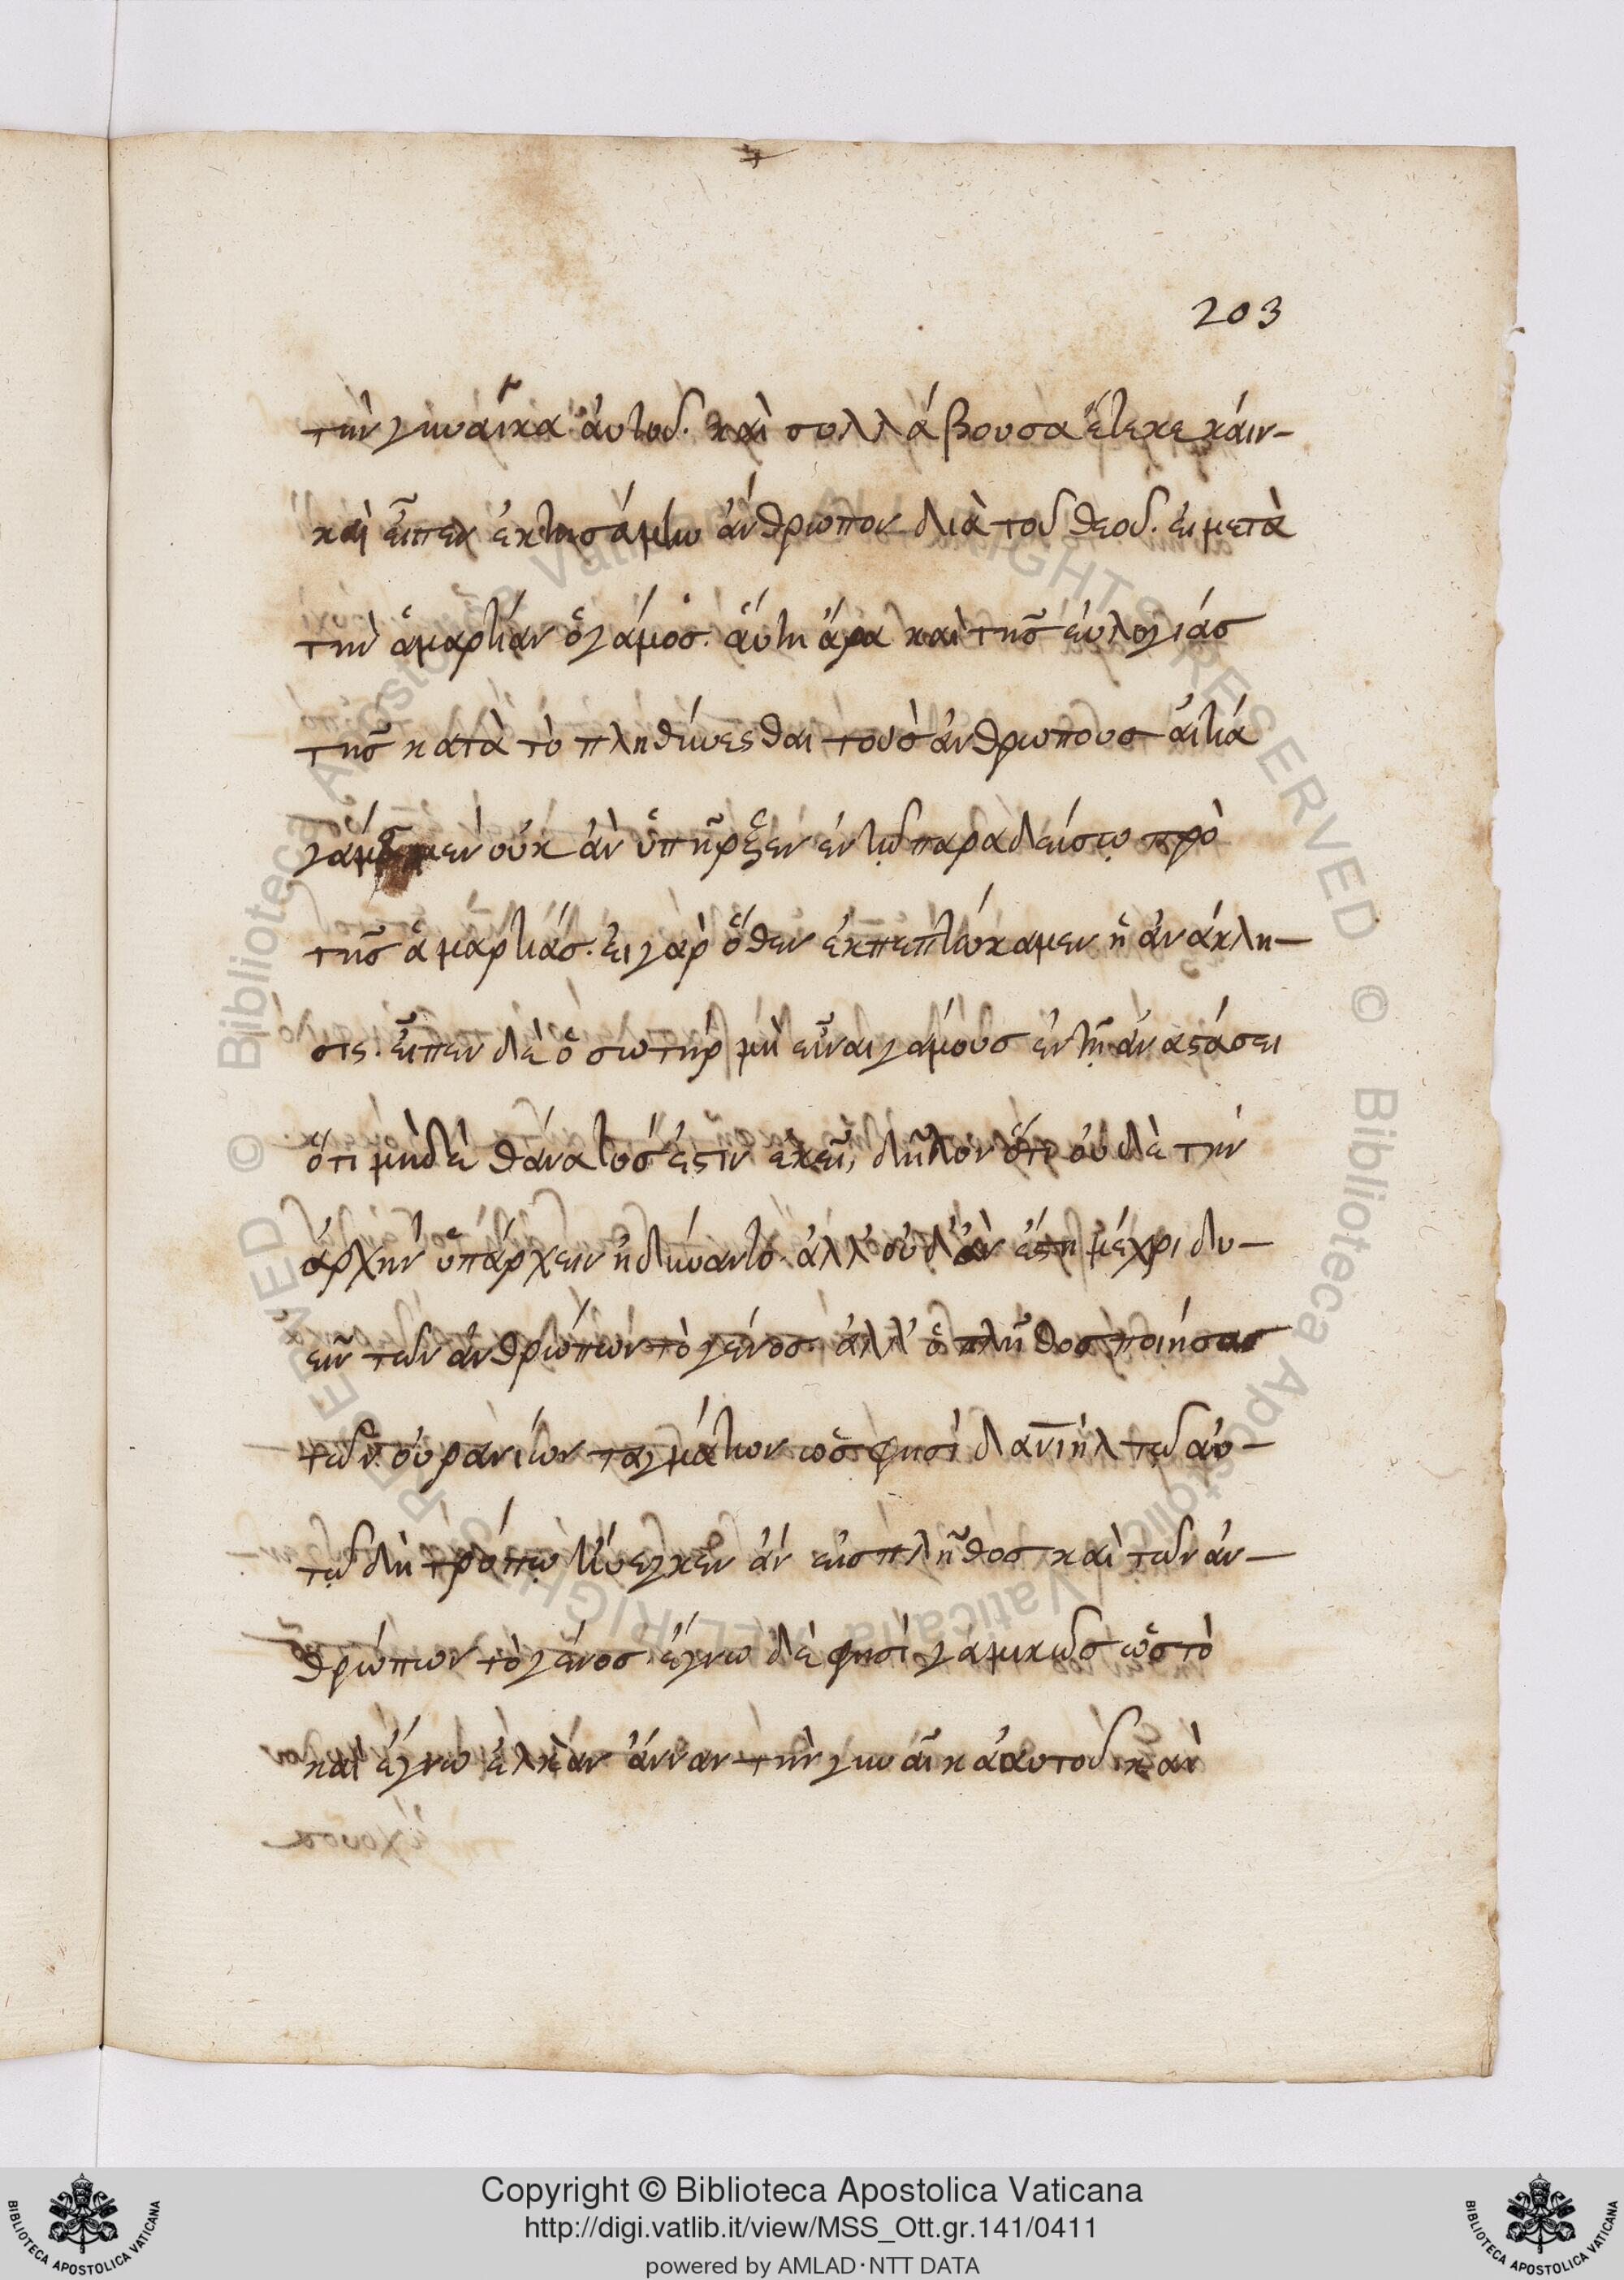 203
τὴν γυναῖκα αὐτοῦ. καὶ συλλάβουσα ἔτεκε κάιν-
καὶ εἶπεν ἐκτησάμην ἄνθρωπον διὰ τοῦ θεοῦ. εἰ μετὰ
τὴν ἁμαρτίαν ὁ γάμος. ἅυτη ἄρα καὶ τῆς εὐλογίας
τῆς κατὰ τὸ πληθύνεσθαι τοὺς ἀνθρώπους αἰτία
γάμος μὲν οὐκ ἂν ὑπῆρξεν ἐν τῷ παραδείσῳ πρὸ
τῆς ἁμαρτίας. εἰ γὰρ ὅθεν ἐκπεπτώκαμεν ἡ ἀνάκλη-
σις. εἶπεν δὲ ὁ σωτὴρ μὴ εἶναι γάμους ἐν τῇ ἀναστάσει
ὅτι μὴδὲ θάνατός ἐστιν ἐκεῖ, δῆλον ὅτι οὐδὲ τὴν
ἀρχὴν ὑπάρχειν ἠδύναντο. ἀλλ' οὐδ' ἂν ἔστη μέχρι δυ-
εῖν τῶν ἀνθρώπων τὸ γένος. ἀλλ' ὁ πλῆθος ποιήσας
τῶν οὐρανίων ταγμάτων ὥς φησὶ δανιὴλ τῷ αὐ-
τῷ δὴ τρόπῳ ἤνεγκεν ἂν εἰς πλῆθος καὶ τῶν ἀν-
θρώπων τὸ γένος. ἔγνω δὲ φησὶ γαμικῶς ὡς τὸ
καὶ ἔγνω ἐλκὰν ἄνναν τὴν γυναῖκα αὐτοῦ καὶ
Copyright © Biblioteca Apostolica Vaticana
http://digi.vatlib.it/view/MSS_Ott.gr.141/0411
powered by AMLAD·NTT DATA